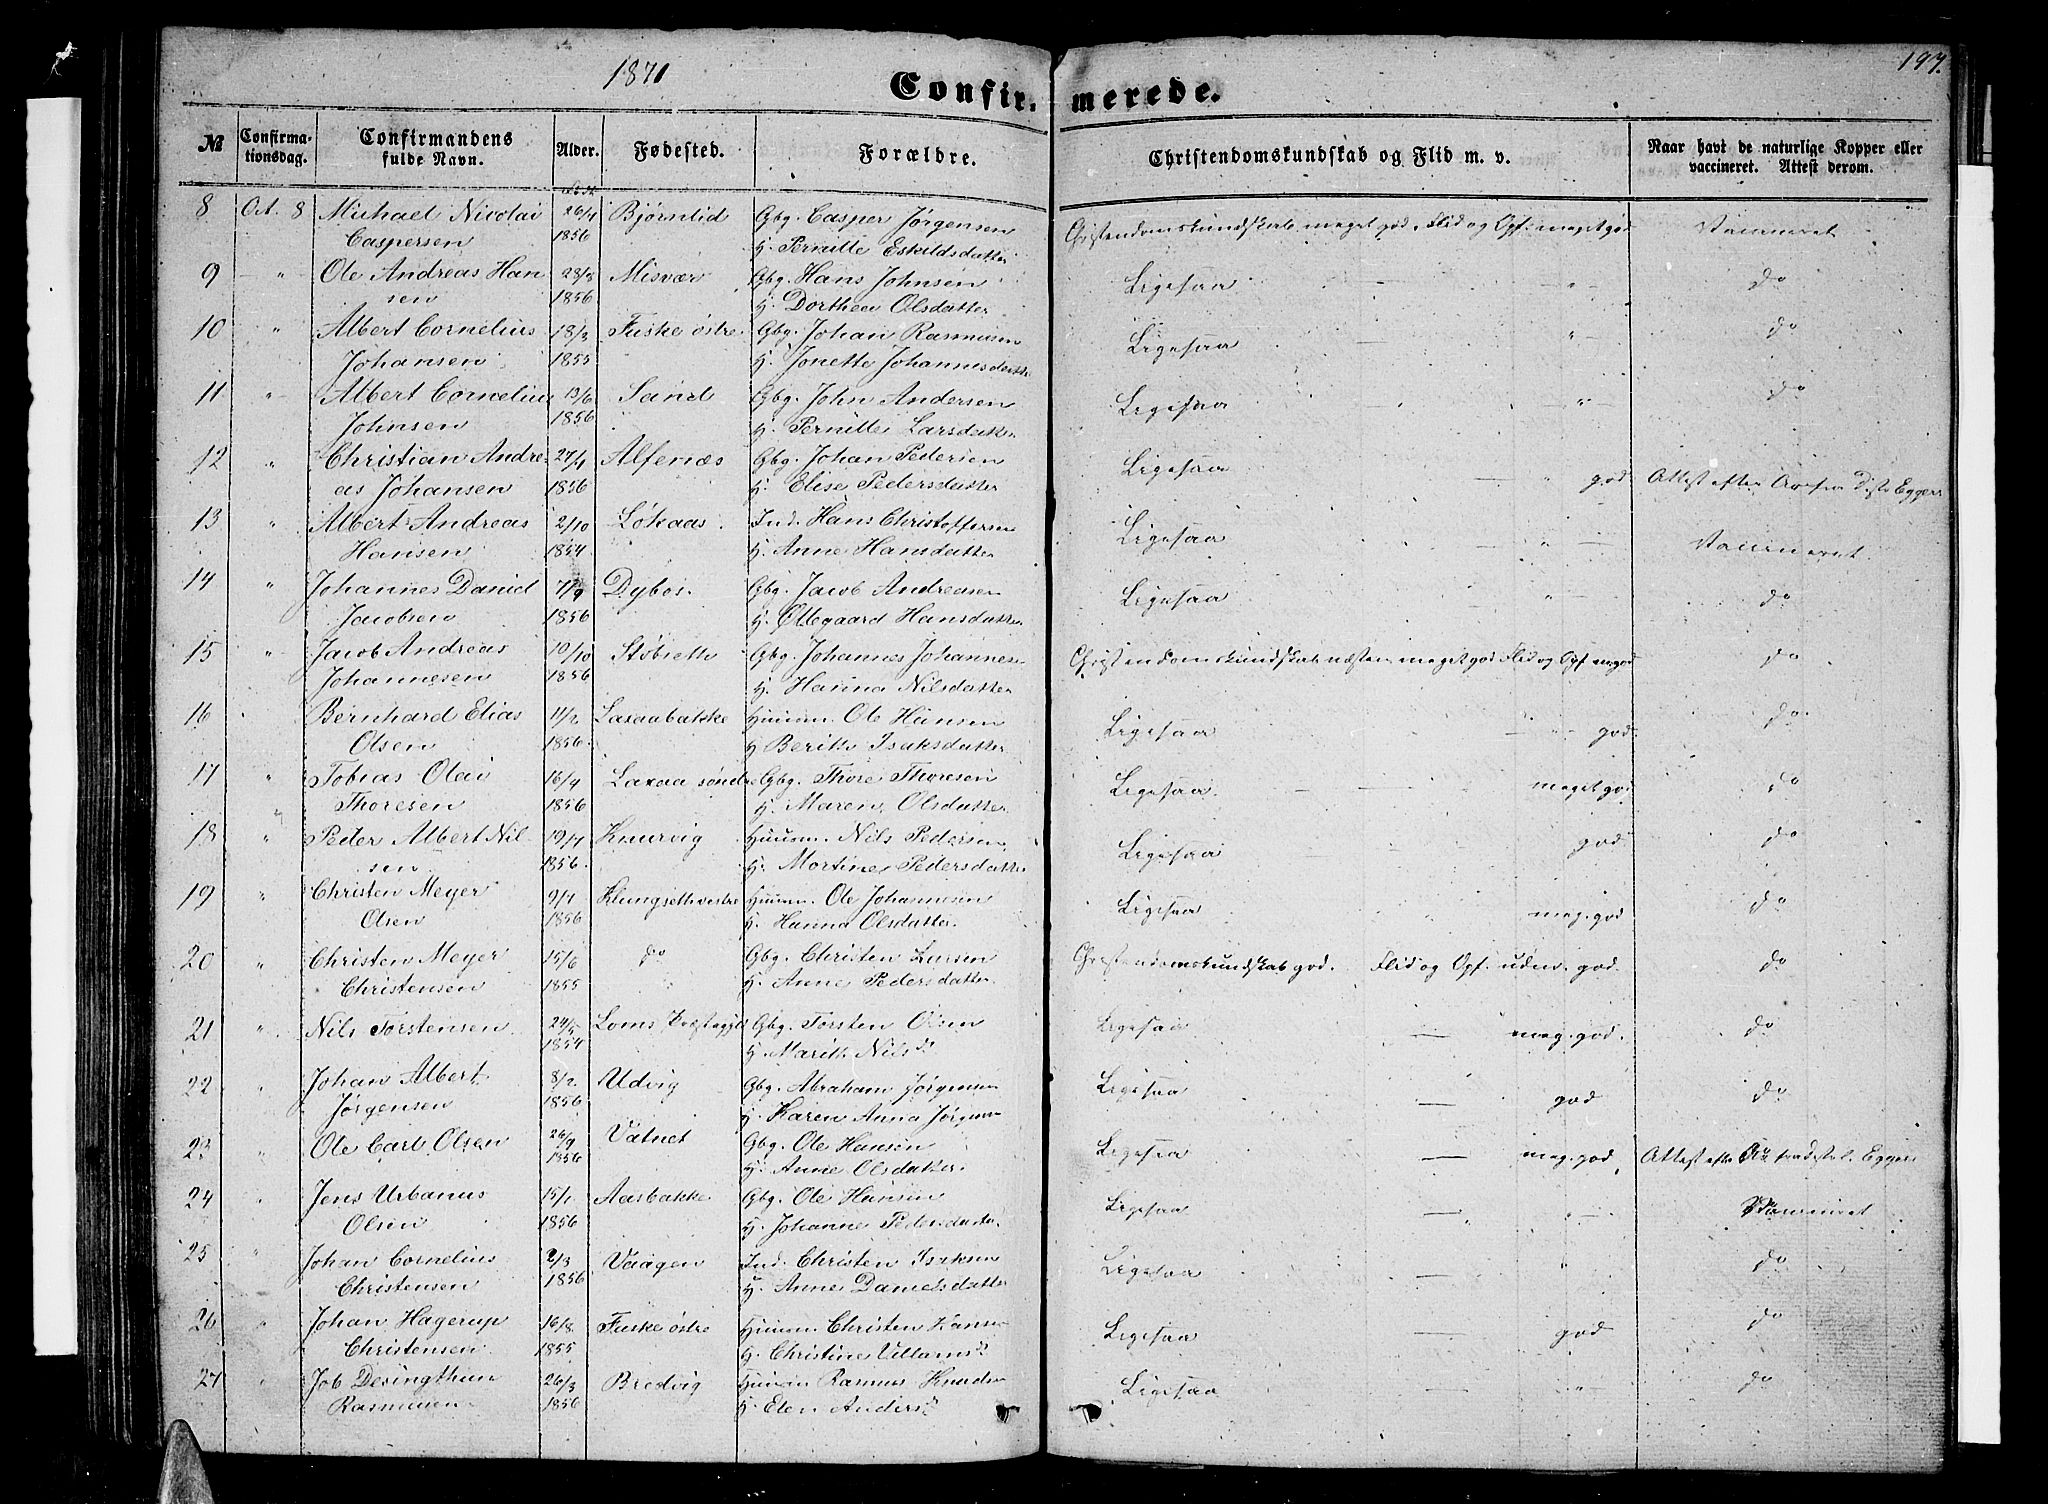 1871
197.
Confir- merede.
№
Confirma-
tionsdag.
Confirmandens
fulde Navn.
Alder.
Fødested.
Forældre.
Christendomskundskab og Flid m. v.
Naar havt de naturlige Kopper eller
vaccineret. Attest derom.
8 Oct. 8 Michael Nicolai 26/4 Bjørnlid Gbg. Casper Jørgensen
Caspersen 1856 H. Pernille Eskildsdatter Christendomskundskab meget god, Flid og Opf. meget god Vaccineret
9 — " Ole Andreas Han 28/8 Misvær Gbg. Hans Johnsen Ligesaa — " — do
sen 1856 H. Dorthea Olsdatter
10 " Albert Cornelius 18/3 Fuske østre Gbg. Johan Rasmusen Ligesaa " do
Johansen 1855 H. Jonette Johannesdatter
11 " Albert Cornelius 13/6 Sand Gbg. John Andersen Ligesaa " do
Johnsen 1856 H. Pernille Larsdatter
12 " Christian Andre- 27/4 Alfenæs Gbg. Johan Pedersen Ligesaa — " god
as Johansen 1856 H. Elise Pedersdatter Attest efter Distr. Eggers
13 " Albert Andreas 2/10 Løkaas. Ind. Hans Christoffersen Ligesaa — " —
Hansen 1854 H. Anne Hansdatter Vaccineret
14 " Johannes Daniel 7/9 Dybos. Gbg. Jacob Andreasen Ligesaa " — do
Jacobsen 1856 H. Øllegaard Hansdatter
15 " Jacob Andreas 10/10 Støbreth Gbg. Johannes Johannesen Christendomskundskab næsten meget god Flid og Opf. m. god do
Johannesen 1856 H. Hanna Nilsdatter
16 Bernhard Elias 11/2 Laxaabakke Huusm. Ole Hansen Ligesaa — " — god do
Olsen 1856 H. Berith Isaksdatter
17 " Tobias Olai 16/4 Laxaa søndre Gbg. Thore Thoresen Ligesaa. meget god do
Thoresen 1856 H. Maren Olsdatter
18 " Peder Albert Nil- 19/4 Knurvig Huusm. Nils Pedersen Ligesaa god do
sen 1856. H. Mortine Pedersdatter
19 " Christen Meyer 9/4 Klungseth vestre Huusm. Ole Johannesen Ligesaa meg. god do
Olsen 1856 H. Hanna Olsdatter.
20 " Christen Meyer 15/6 do Gbg. Christen Larsen Christendomskundskab god. Flid og Opf. uden. god. do
Christensen 1855 H. Anne Pedersdatter
21 " Nils Torstensen 24/5 Loms Præstegjeld Gbg. Torsten Olsen Ligesaa — meg. god. do
1854 H. Marith Nilsdr
22 " Johan Albert 8/2 Udvig Gbg. Abraham Jørgensen Ligesaa — god do
Jørgensen 1856 H. Karen Anna Jørgens
23 " Ole Carl Olsen 26/9 Vatnet Gbg. Ole Hansen Ligesaa — meg. god
1856 H. Anne Olsdatter. Attest efter Eggers
24 " Jens Urbanus 15/1 Aasbakke Gbg. Ole Hansen Ligesaa — " " Vaccineret
Olsen 1856 H. Johanne Pedersdatter
25 " Johan Cornelius 2/3 Vaagen Ind. Christen Isaksen Ligesaa — " do
Christensen 1856 H. Anne Danielsdatter
26 " Johan Hagerup 16/8. Fuske østre Huusm. Christen Hansen Ligesaa — god do
Christensen 1855 H. Christine Villumsdr
27 " Job Desingthun 26/3 Bredvig Huusm. Rasmus Knudsen Ligesaa — " — do
Rasmusen 1856 H. Elen Andersdr